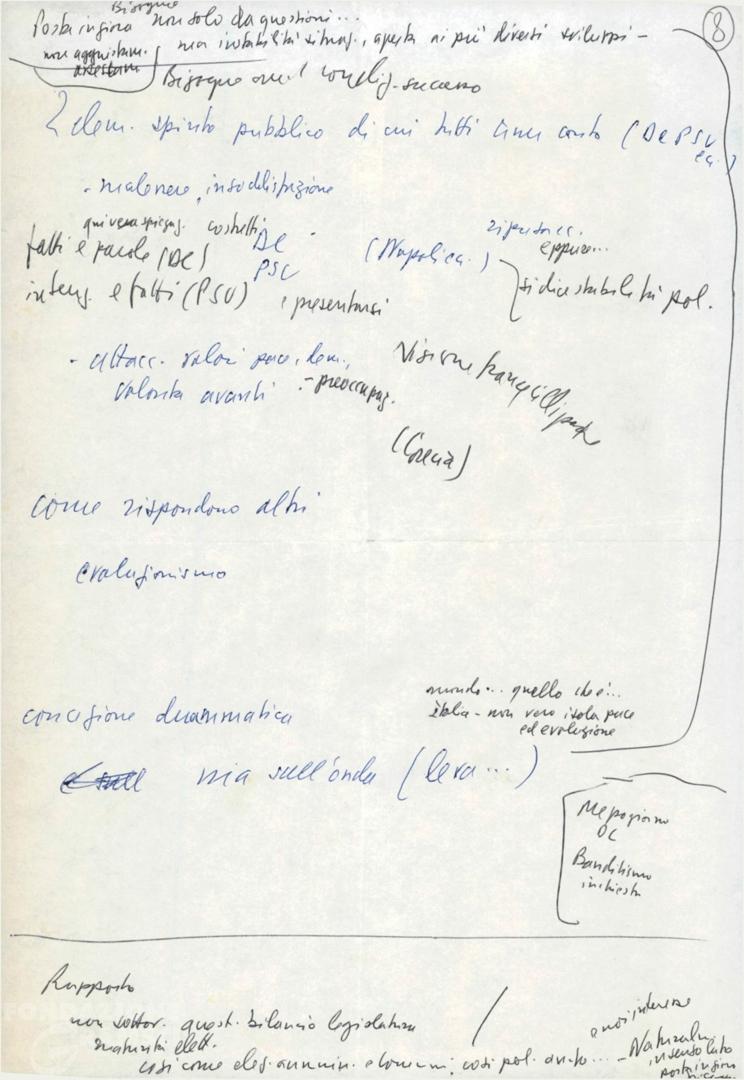 Bisogna
Posta in gioco non solo da questioni...
non aggiustam. ma instabilità situaz., aperta ai più diversi sviluppi -
8
Bisogna succeso
2 elem. spirito pubblico di cui tutti conto (DC PSU
ecc.)
- malessere, insoddisfazione
costretti
fatti e parole (DC) DC (Napoli ecc.) eppure...
PSU
intenz. e fatti (PSU) e presentarsi si dice stabilità pol.
- attacc. valori pace, dem., Visione tranquillizzante
volontà avanti - preoccupaz.
(Grecia)
come rispondono altri
evoluzionismo
mondo... quello che è...
concezione drammatica Italia - non vero isola pace
ed evoluzione
ma sull'onda (leva...)
Mezzogiorno
DC
Banditismo
inchiesta
Rapporto
non sottov. quest. bilancio legislatura
maturità elett.
così come elez. ammin. così pol. Naturalm.
in senso lato
posta in gioco